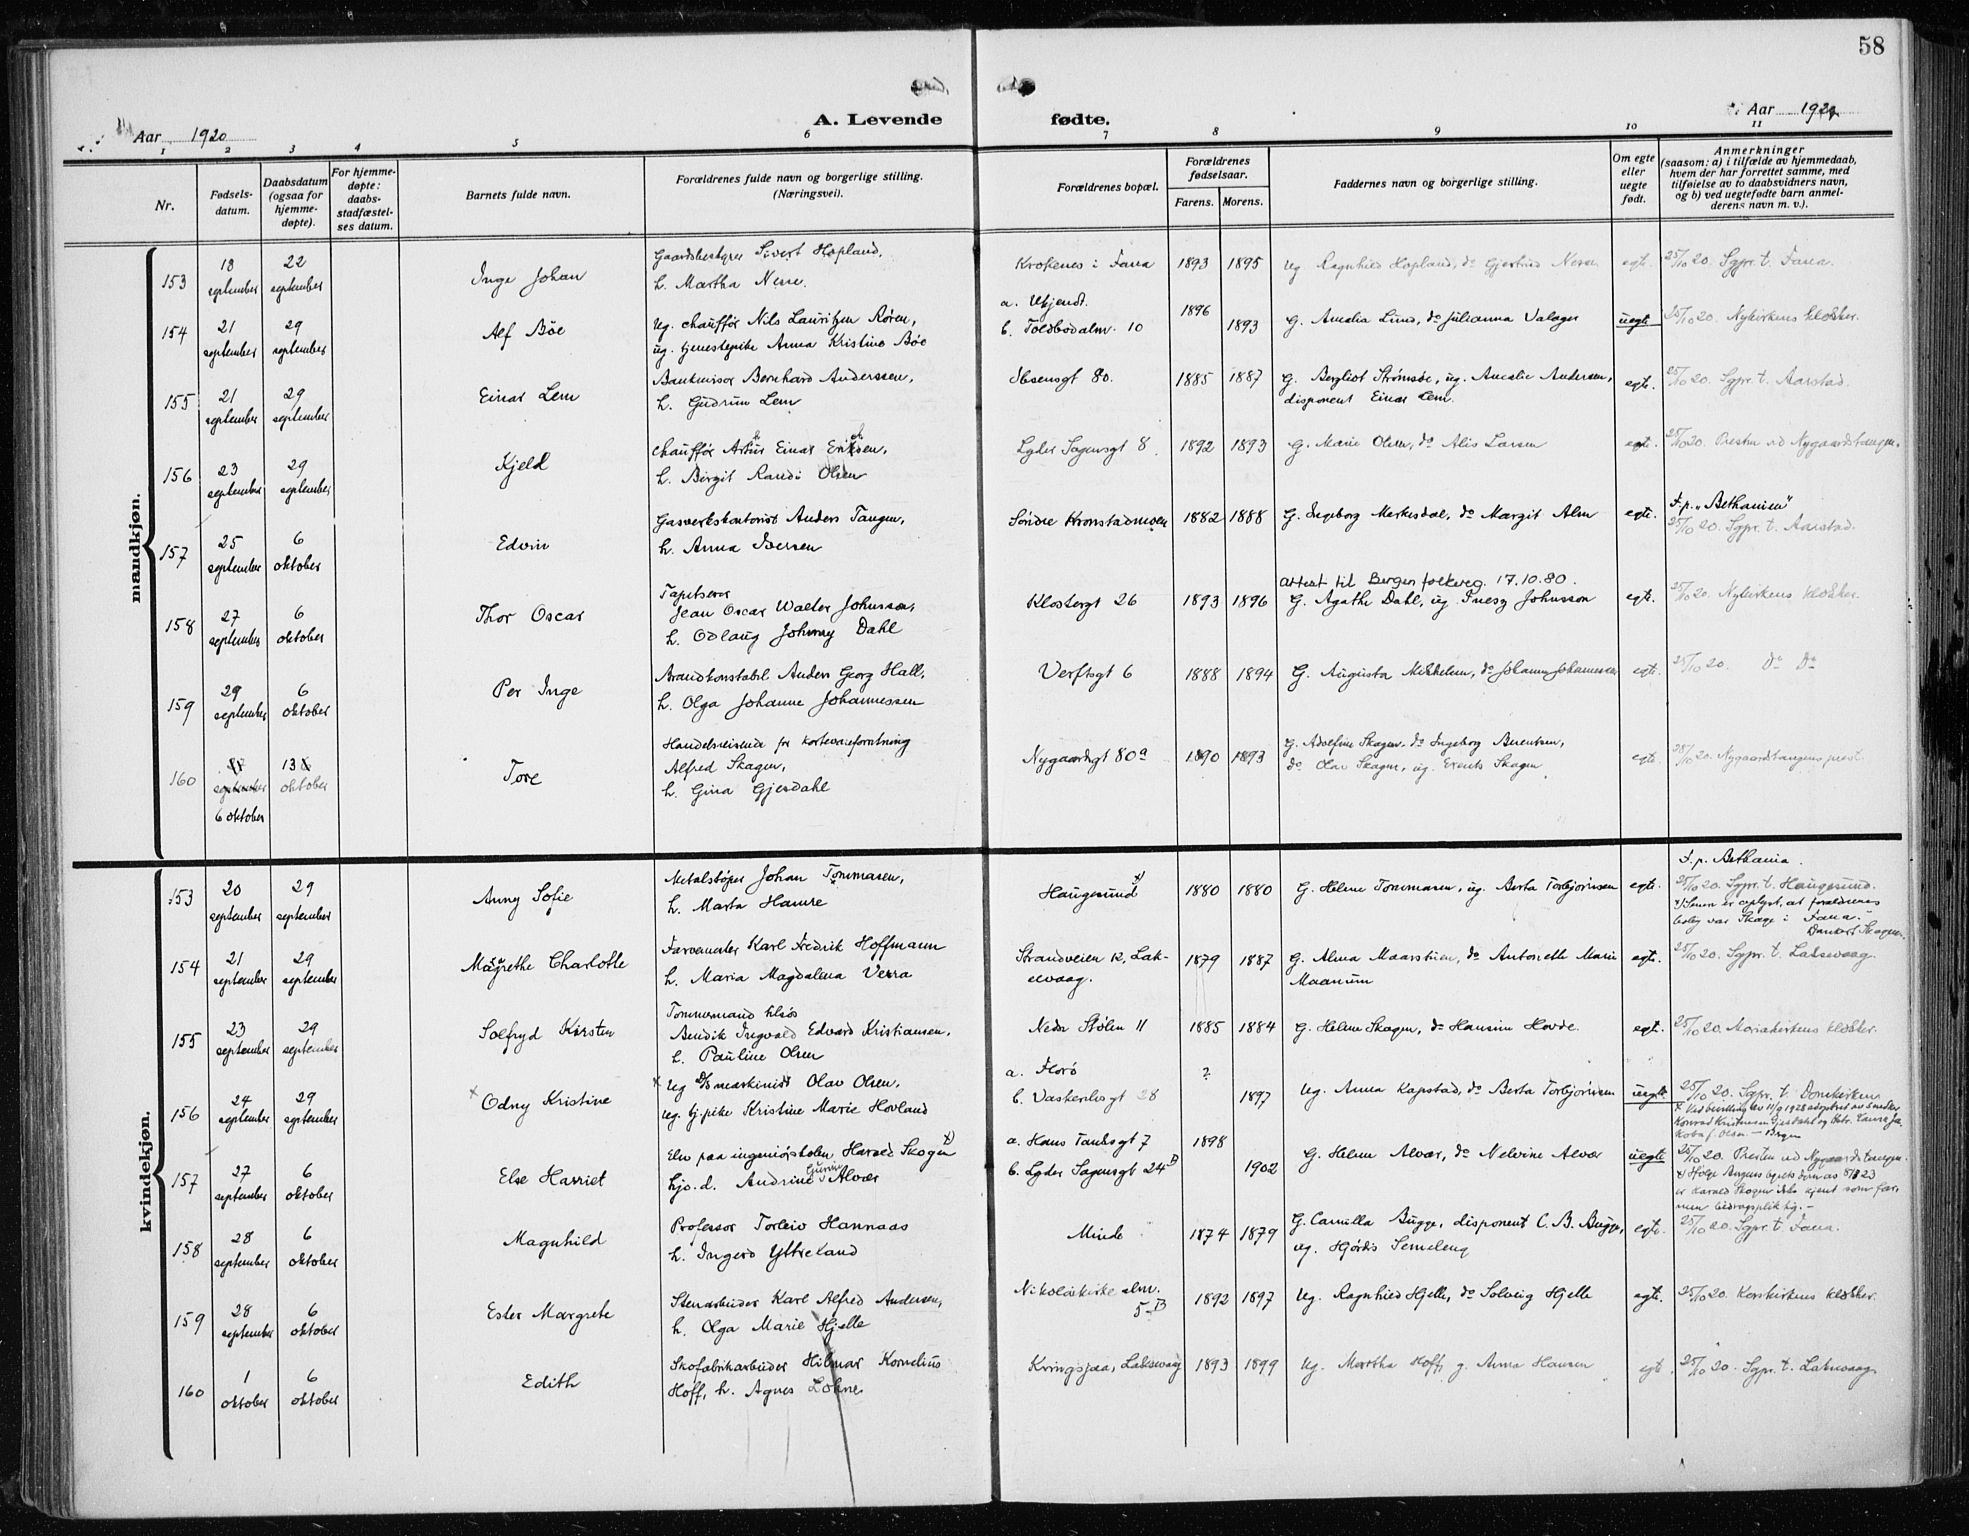 58
Aar 1920
A. Levende
fødte.
Aar 1920
1 2 3 4 5 6 7 8 9 10 11
Nr.
Fødsels-
datum.
Daabsdatum
(ogsaa for
hjemme-
døpte).
For hjemme-
døpte:
daabs-
stadfæstel-
ses datum.
Barnets fulde navn.
Forældrenes fulde navn og borgerlige stilling.
(Næringsvei).
Forældrenes bopæl.
Forældrenes
fødselsaar.
Farens. Morens.
Faddernes navn og borgerlige stilling.
Om egte
eller
uegte
født.
Anmerkninger
(saasom: a) i tilfælde av hjemmedaab,
hvem der har forrettet samme, med
tilføielse av to daabsvidners navn,
og b) ved uegtefødte barn anmel-
derens navn m. v.).
mandkjøn.
153
18
september
22
september
Inge Johan
Gaardsbestyrer Sivert Hopland,
h. Martha Nesse.
Krokenes i Fana
1893 1895
Ug. Ragnhild Hopland, do Gjertrud Nesse
egte.
25/10 20. Sgpr. t. Fana.
154
21
september
29
september
Alf Bøe
Ug. chauffør Nils Lauritzen Røren,
ug. tjenestepike Anna Kristine Bøe
a. Ukjendt.
b. Toldbodalm. 10
1896
1893
G. Amalia Lund, do Julianna Valager
uegte
25/10 20. Nykirkens klokker.
155
21
september
29
september
Einar Lem
Bankrevisor Bernhard Anderssen,
h. Gudrun Lem
Ibsensgt 80.
1885 1887
G. Bergliot Strømsøe, ug. Amalie Andersen,
disponent Einar Lem.
egte.
25/10 20. Sgpr. t. Aarstad.
156
23
september
29
september
Kjeld
Chauffør Arthur Einar Eriksen,
h. Birgit Randi Olsen
Lyder Sagensgt 8
1892 1893
G. Marie Olsen, do Alis Larsen
egte.
25/10 20. Presten ved Nygaardstangen.
157
25
september
6
oktober
Edvin
Gasverkskontorist Anders Tangen,
h. Anna Iversen
Søndre Kronstadmoen
1882 1888
G. Ingeborg Merkesdal, do Margit Alm
egte.
F. p. "Bethanien"
25/10 20. Sgpr. t. Aarstad.
158
27
september
6
oktober
Thor Oscar
Tapetserer
Jean Oscar Walter Johnsson,
h. Odlaug Johnny Dahl
Klostergt 26
1893 1896
attest til Bergen folkereg. 17.10.80.
G. Agathe Dahl, ug. Johnsson
egte.
25/10 20. Nykirkens klokker.
159
29
september
6
oktober
Per Inge
Brandkonstabel Anders Georg Hall,
h. Olga Johanne Johannessen
Verftsgt 6
1888 1894
G. Augusta Mikkelsen, do Johanne Johannessen
egte.
25/10 20. do do
160
september
6 oktober
13
oktober
Tore
Handelsreisende for kortevareforretning
Alfred Skagen,
h. Gina Gjesdahl
Nygaardsgt 80 a
1890 1893
G. Adolfine Skagen, do Ingeborg Berentsen,
do Olav Skagen, ug. Skagen
egte.
25/10 20. Nygaardstangens prest.
kvindekjøn.
153
20
september
29
september
Anny Sofie
Metalstøper Johan Tommasen,
h. Marta Hamre
Haugesund x)
1880 1880
G. Helene Tommasen, ug. Berta Torbjørnsen
egte.
F. p. Bethania.
25/10 20. Sgpr. t. Haugesund.
x) Senere er oplyst, at forældrenes
bolig var Skage i Fana.
Dankert Skagen.
154
21
september
29
september
Margrethe Charlotte
Farvemester Karl Fredrik Hoffmann
h. Maria Magdalena Verra
Strandveien 12, Lak-
sevaag.
1879 1887
G. Alma Maarstuen, do Antonette Marie
Maanum
egte.
25/10 20. Sgpr. t. Laksevaag.
155
23
september
29
september
Solfryd Kirsten
Tømmermand tilsjøs
Bendik Ingvald Edvard Kristiansen,
h. Pauline Olsen
Nedr Stølen 11
1885 1884
G. Helene Skagen, do Hansine Hovde.
egte.
25/10 20. Mariakirkens klokker.
156
24
september
29
september
x Odny Kristine
x Ug D/S maskinist Olav Olsen,
ug. tj.pike Kristine Marie Hovland
a. Florø
b. Vaskerelvsgt 28
?
1897
Ug. Anna Kapstad, do Berta Torbjørnsen
uegte
25/10 20. Sgpr. t. Domkirken
x. Ved bevilling av 11/9 1928 adoptert av smedler
Konrad Kristensen Gjesdahl og hstr. Laura Ja-
koba f. Olsen - Bergen
157
27
september
6
oktober
Else Harriet
Elev paa ingeniørskolen Harald Skogen x)
hjv. d. Andrine Alvær
a. Hans Tanksgt 7
b. Lyder Sagensgt 24 B
1898
1902
G. Helene Alvær, do Nelvine Alvær
uegte
25/10 20. Presten ved Nygaardstangen.
x) Ifølge Bergens byrets dom av 8/1 23
er Harald Skogen ikke kjent som far,
men bidragspliktig. -
158
28
september
6
oktober
Magnhild
Professor Torleiv Hannaas
h. Ingerd Ytreland
Minde
1874 1879
G. Camilla Bugge, disponent C. B. Bugge,
ug. Hjørdis Semeleng
egte.
25/10 20. Sgpr. t. Fana.
159
28
september
6
oktober
Ester Margrete
Stenarbeider Karl Alfred Andersen,
h. Olga Marie Hjelle
Nikolaikirke alm.
5 B
1892 1897
Ug. Ragnhild Hjelle, do Solveig Hjelle
egte.
25/10 20. Korskirkens klokker.
160
1
oktober
6
oktober
Edith
Skofabrikarbeider Hilmar Kornelius
Hoff, h. Agnes Lohne
Kringsjaa, Laksevaag
1893 1899
Ug. Martha Hoff, g. Anna Hansen
egte.
25/10 20. Sgpr. t. Laksevaag.